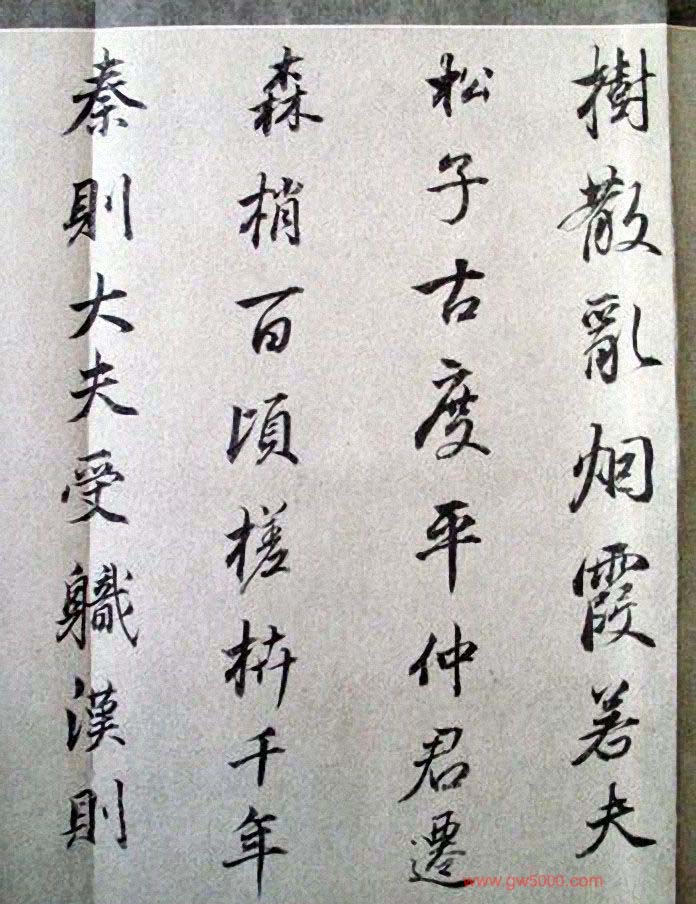 樹散亂烟霞若夫
松子古度平仲君遷
森梢百頃槎枿千年
秦則大夫受軄漢則
www.gw5000.com